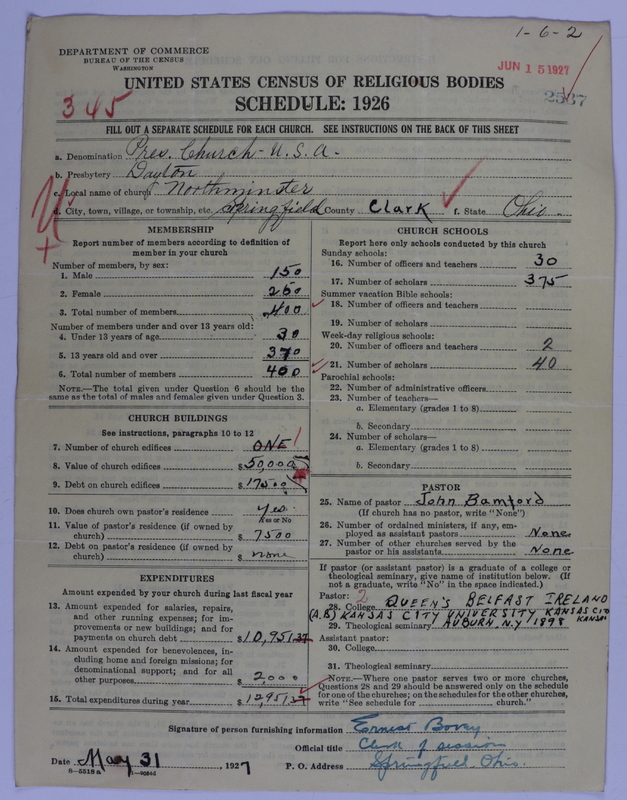 1-6-2
DEPARTMENT OF COMMERCE
BUREAU OF THE CENSUS
WASHINGTON
JUN 15 1927
2537
UNITED STATES CENSUS OF RELIGIOUS BODIES
345
SCHEDULE: 1926
FILL OUT A SEPARATE SCHEDULE FOR EACH CHURCH. SEE INSTRUCTIONS ON THE BACK OF THIS SHEET
a. Denomination Pres. Church - U.S.A.
b. Presbytery Dayton
c. Local name of church Northminster
d. City, town, village, or township, etc. Springfield County Clark f. State Ohio.
MEMBERSHIP
Report number of members according to definition of
member in your church
Number of members, by sex:
1. Male 150
2. Female 250
3. Total number of members 400
Number of members under and over 13 years old:
4. Under 13 years of age 30
5. 13 years old and over 370
6. Total number of members 400
NOTE.—The total given under Question 6 should be the
same as the total of males and females given under Question 3.
CHURCH BUILDINGS
See instructions, paragraphs 10 to 12
7. Number of church edifices ONE 1
8. Value of church edifices $50,000
9. Debt on church edifices $17500
10. Does church own pastor's residence Yes.
Yes or No
11. Value of pastor's residence (if owned by
church) $ 7500
12. Debt on pastor's residence (if owned by
church) $ none
EXPENDITURES
Amount expended by your church during last fiscal year
13. Amount expended for salaries, repairs,
and other running expenses; for im-
provements or new buildings; and for
payments on church debt $10,951.37
14. Amount expended for benevolences, in-
cluding home and foreign missions; for
denominational support; and for all
other purposes $2,000
15. Total expenditures during year $12,951.37
CHURCH SCHOOLS
Report here only schools conducted by this church
Sunday schools:
16. Number of officers and teachers 30
17. Number of scholars 375
Summer vacation Bible schools:
18. Number of officers and teachers
19. Number of scholars
Week-day religious schools:
20. Number of officers and teachers 2
21. Number of scholars 40
Parochial schools:
22. Number of administrative officers
23. Number of teachers—
a. Elementary (grades 1 to 8)
b. Secondary
24. Number of scholars—
a. Elementary (grades 1 to 8)
b. Secondary
PASTOR
25. Name of pastor John Bamford
(If church has no pastor, write "None")
26. Number of ordained ministers, if any, em-
ployed as assistant pastors None
27. Number of other churches served by the
pastor or his assistants None
If pastor (or assistant pastor) is a graduate of a college or
theological seminary, give name of institution below. (If
not a graduate, write "No" in the space indicated.)
Pastor: 2
28. College QUEEN'S BELFAST IRELAND
(A.B) KANSAS CITY UNIVERSITY KANSAS CITY KANSAS
29. Theological seminary AUBURN. N.Y 1898
Assistant pastor:
30. College
31. Theological seminary
NOTE.—Where one pastor serves two or more churches,
Questions 28 and 29 should be answered only on the schedule
for one of the churches; on the schedules for the other churches,
write "See schedule for church."
Signature of person furnishing information Ernest Bovey
Official title Clerk of session
Date May 31, 1927 P. O. Address Springfield Ohio.
8-5518a